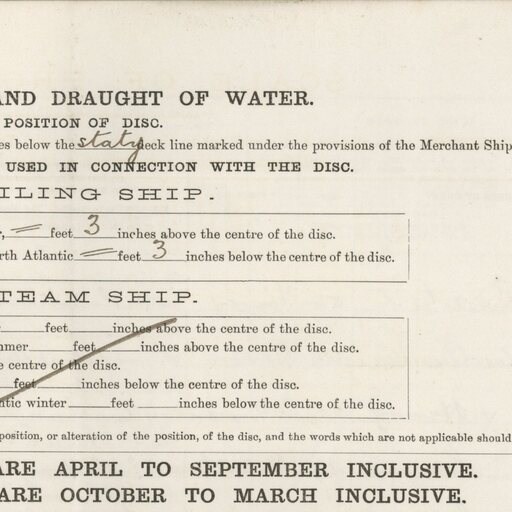 AND DRAUGHT OF WATER.
POSITION OF DISC.
es below the staty deck line marked under the provisions of the Merchant Ship
USED IN CONNECTION WITH THE DISC.
ILING SHIP.
, = feet 3 inches above the centre of the disc.
rth Atlantic = feet 3 inches below the centre of the disc.
TEAM SHIP.
feet inches above the centre of the disc.
mmer feet inches above the centre of the disc.
e centre of the disc.
feet inches below the centre of the disc.
ntic winter feet inches below the centre of the disc.
position, or alteration of the position, of the disc, and the words which are not applicable should
ARE APRIL TO SEPTEMBER INCLUSIVE.
ARE OCTOBER TO MARCH INCLUSIVE.